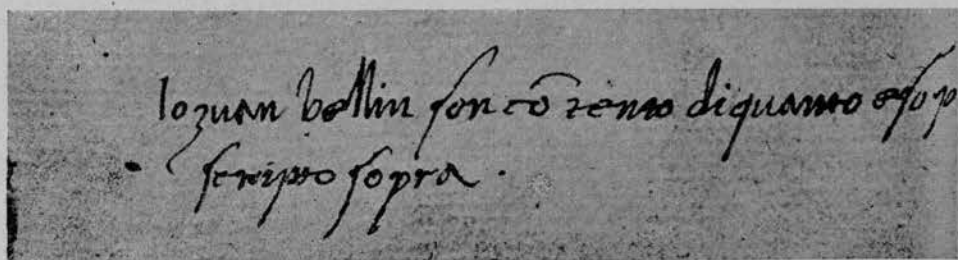 Io zuan bellin son cõtento di quanto e sop
scripto sopra .